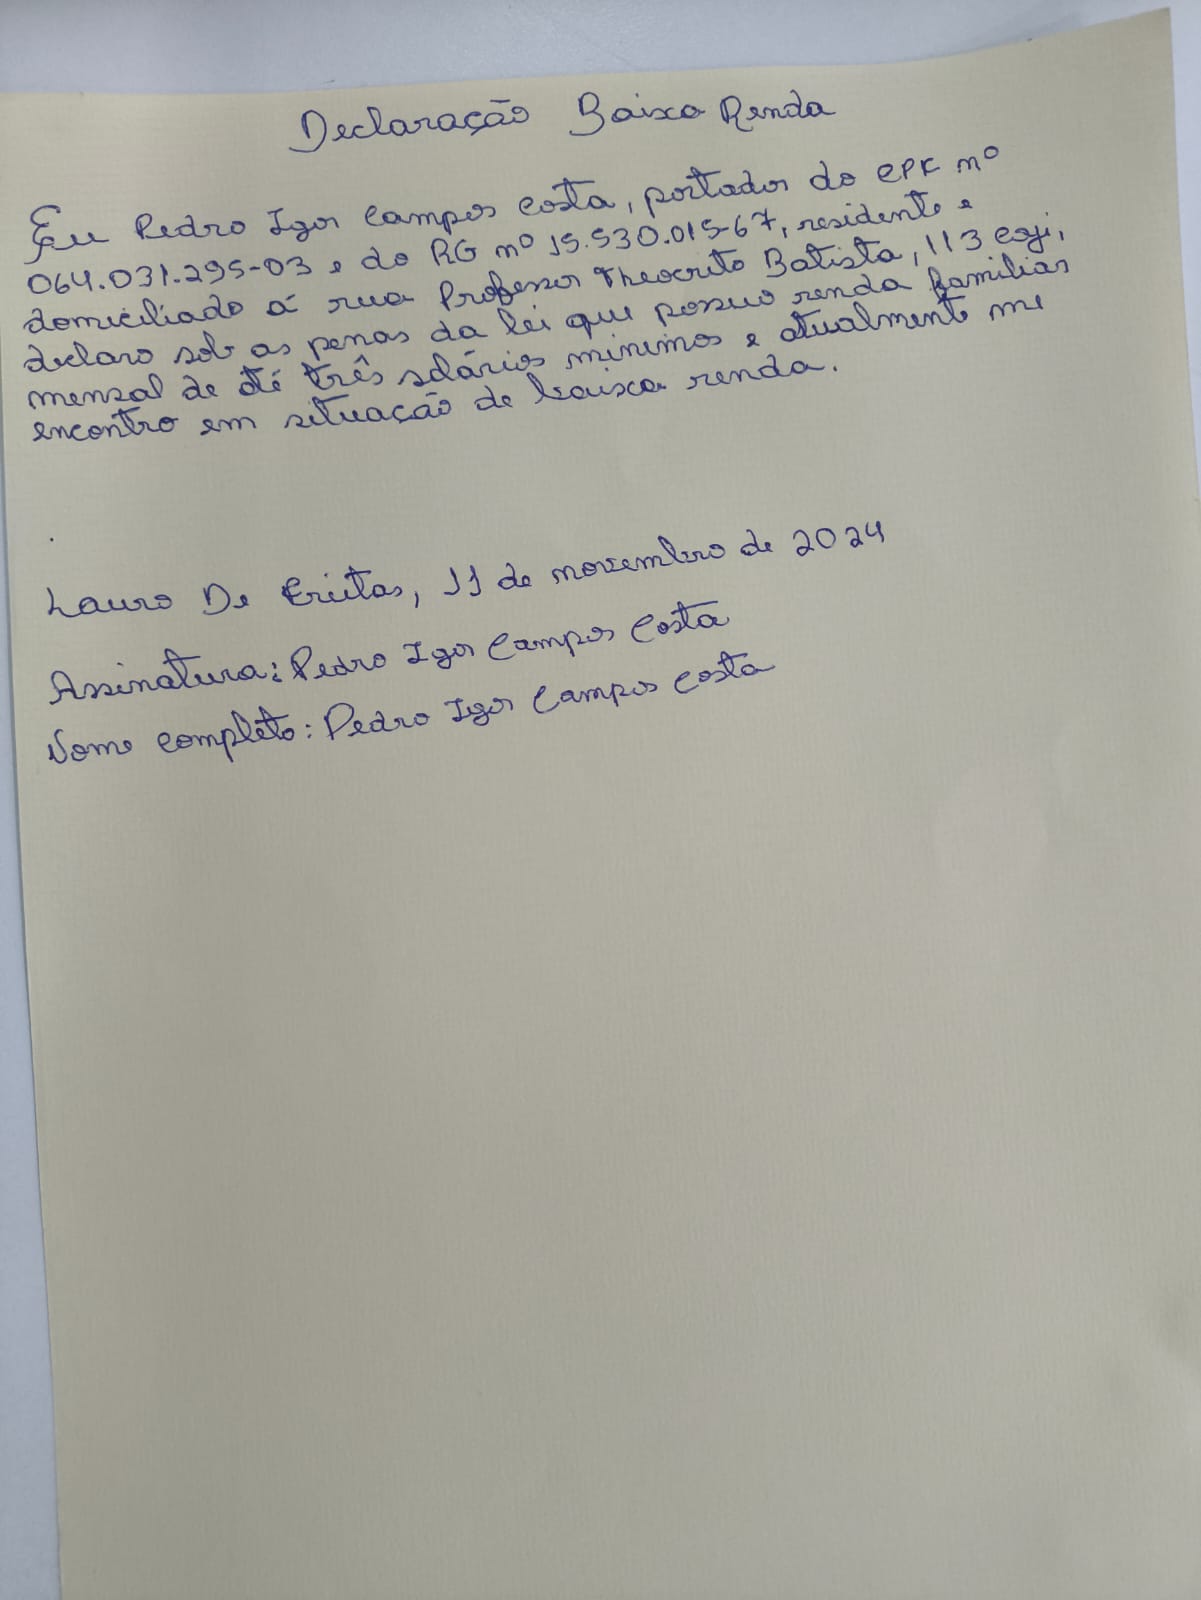 Declaração Baixa Renda
Eu Pedro Igor Campos Costa, portador do CPF nº
064.031.295-03 e do RG nº 15.530.015-67, residente e
domiciliado á rua Professor Theocrito Batista, 113 caji,
declaro sob as penas da lei que possuo renda familiar
mensal de até três salários minimos e atualmente me
encontro em situação de baixa renda.
Lauro De Freitas, 11 de novembro de 2024
Assinatura: Pedro Igor Campos Costa
Nome completo: Pedro Igor Campos Costa